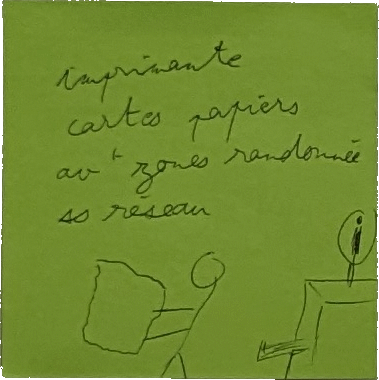 imprimante
cartes papiers
avt zones randonnée
ss réseau
i